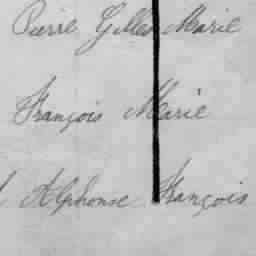 Pierre Gilles Marie
François Marie
Alphonse François